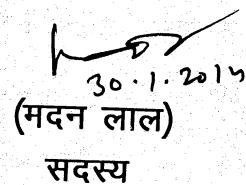 30.1.2014
(मदन लाल)
सदस्य